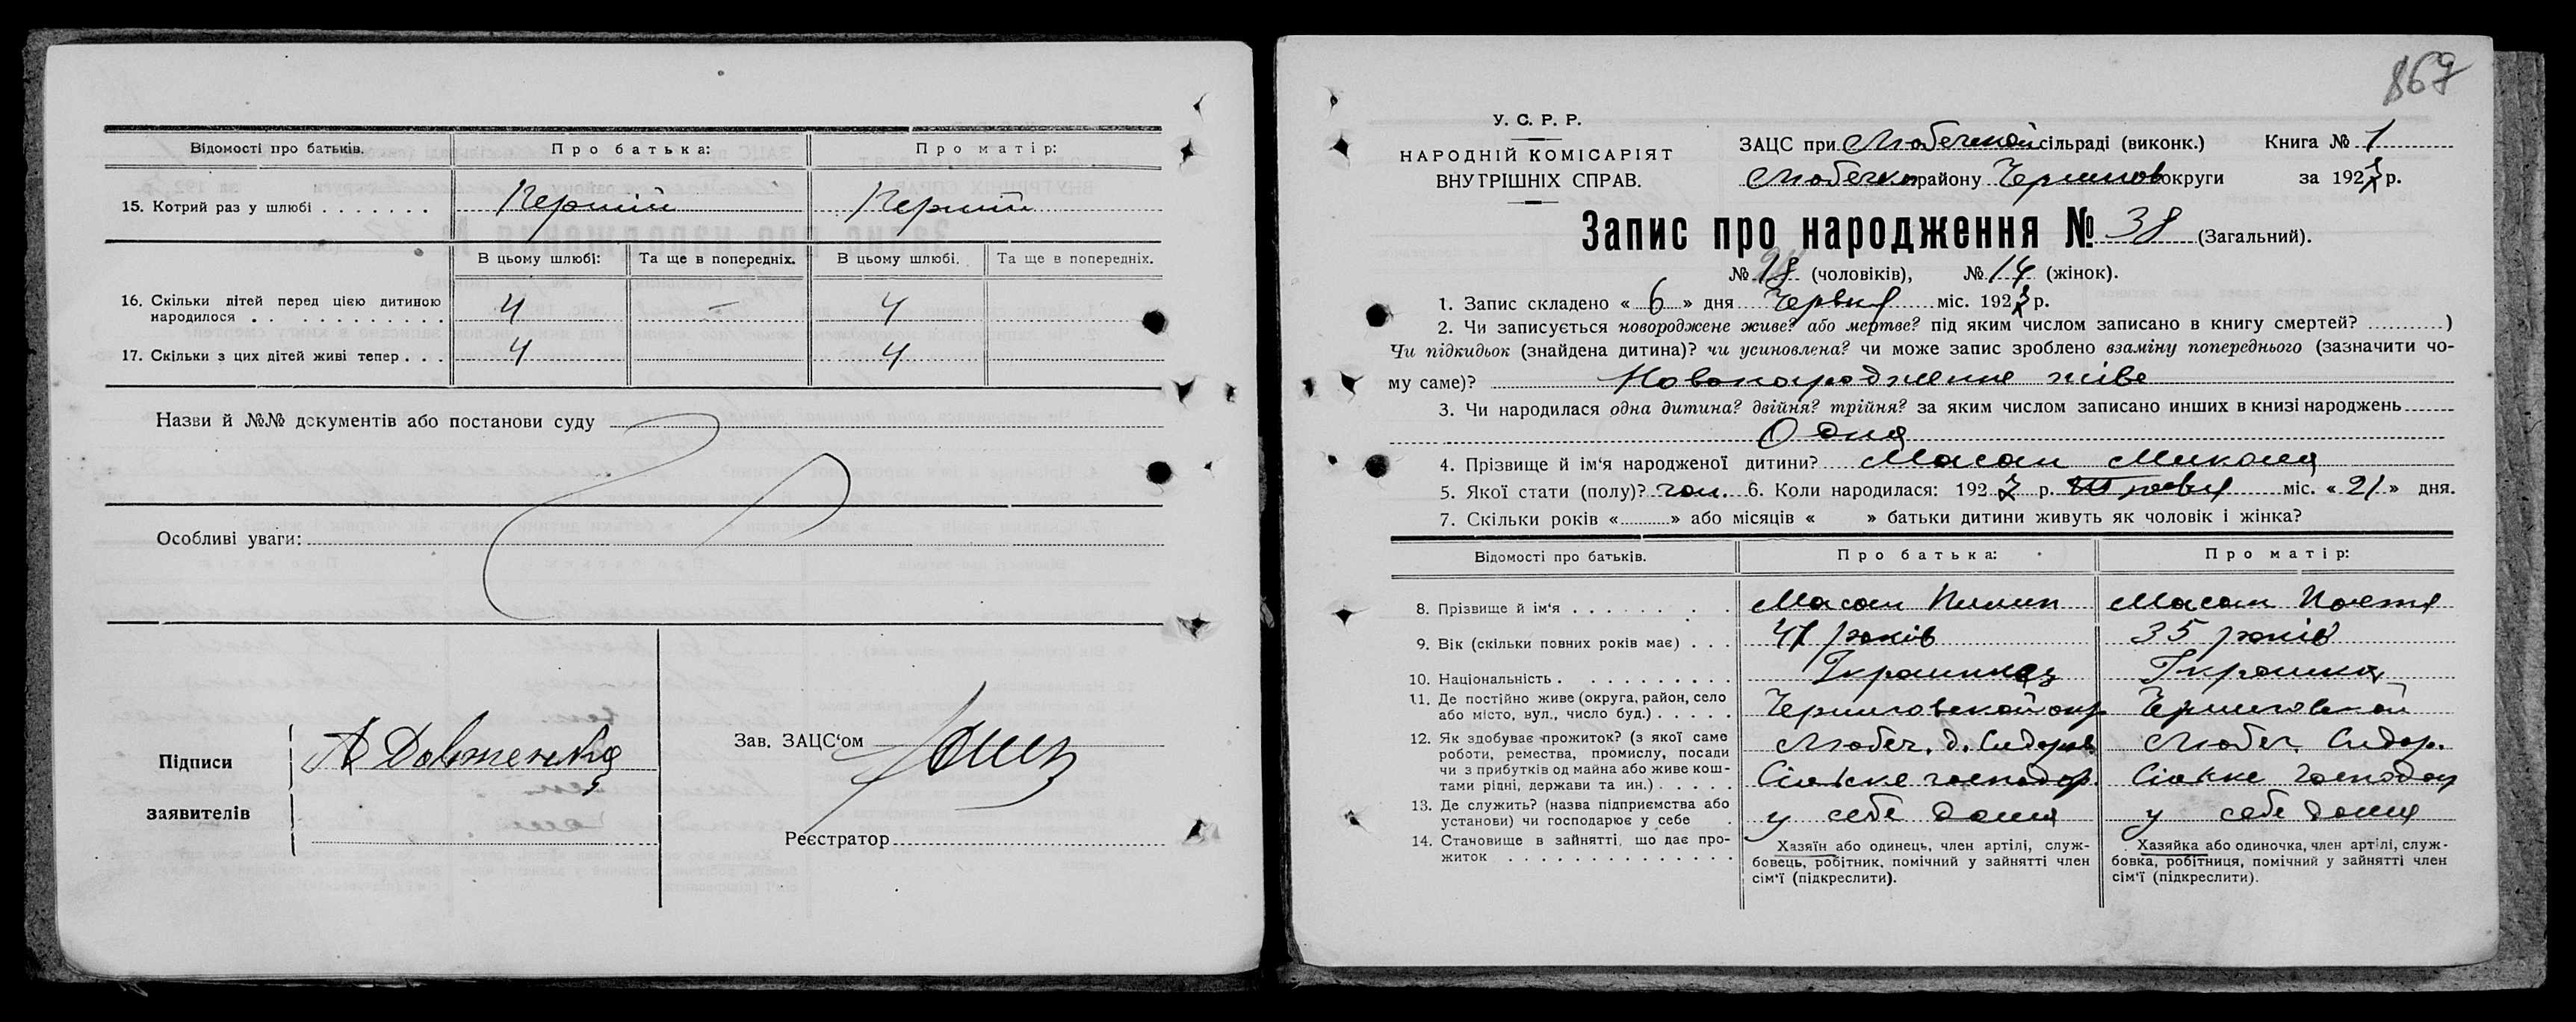 Відомості про батьків.
Про батька:
Про матір:
15. Котрий раз у шлюбі . . . . . . .
Перший
Перший
В цьому шлюбі:
Та ще в попередніх.
В цьому шлюбі.
Та ще в попередніх.
16. Скільки дітей перед цією дитиною
народилося . . . . . . . . . . .
4
—
4
17. Скільки з цих дітей живі тепер . . .
4
4
Назви й №№ документів або постанови суду
Особливі уваги:
Підписи
заявителів
А Довженко
Зав. ЗАЦС'ом
Реєстратор
869
У. С. Р. Р.
НАРОДНІЙ КОМІСАРІЯТ
ВНУТРІШНІХ СПРАВ.
ЗАЦС при Любечской сільраді (виконк.)
Книга № 1
Любечск району Чернигов округи
за 1923 р.
Запис про народження № 38 (Загальний).
№ 18 (чоловіків), № 14 (жінок).
1. Запис складено « 6 » дня Червня міс. 1923 р.
2. Чи записується новороджене живе? або мертве? під яким числом записано в книгу смертей? ...........)
Чи підкидьок (знайдена дитина)? чи усиновлена? чи може запис зроблено взаміну попереднього (зазначити чо-
му саме)? Новонароджене живе
3. Чи народилася одна дитина? двійня? трійня? за яким числом записано инших в книзі народжень
Одна
4. Прізвище й ім'я народженої дитини? Масан Микола
5. Якої стати (полу)? чол. 6. Коли народилася: 1923 р. травня міс. « 21 » дня.
7. Скільки років « » або місяців « » батьки дитини живуть як чоловік і жінка?
Відомості про батьків.
Про батька:
Про матір:
8. Прізвище й ім'я . . . . . . . .
Масан Пилип
Масан
9. Вік (скільки повних років має) . . .
41 років
35 років
10. Національність . . . . . . . . . .
Україн
11. Де постійно живе (округа, район, село
або місто, вул., число буд.) . . . . .
Черниговской окр
Черниговской
12. Як здобуває прожиток? (з якої саме
роботи, ремества, промислу, посади
чи з прибутків од майна або живе кош-
тами рідні, держави та ин.) . . . . .
Любеч. д. Сидорів
Любеч. Сидор.
Сільске господар.
Сільске господар
13. Де служить? (назва підприємства або
установи) чи господарює у себе .
у себе дома
у себе дома
14. Становище в зайнятті, що дає про-
житок . . . . . . . . . . . . . .
Хазяїн або одинець, член артілі, служ-
бовець, робітник, помічний у зайнятті член
сім'ї (підкреслити).
Хазяйка або одиночка, член артілі, служ-
бовка, робітниця, помічний у зайнятті член
сім'ї (підкреслити).